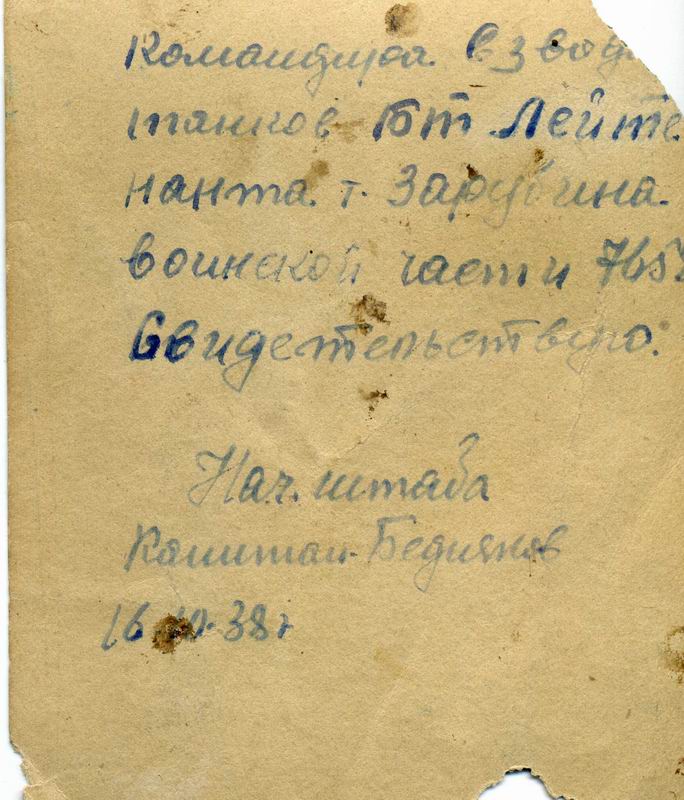 Командира взвода
танков БТ Лейте
нанта т. Зарубина.
воинской части 765
Свидетельствую.
Нач. штаба
Капитан Бедняков
16.10.38г